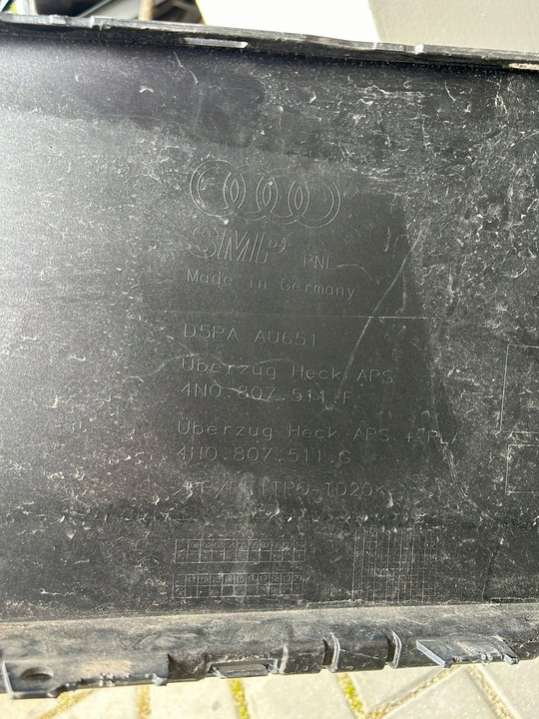 SML
PNL
Made in Germany
D5PA AU651
Überzug Heck APS
4N0.807.511.F
Überzug Heck APS +
4N0.807.511.G